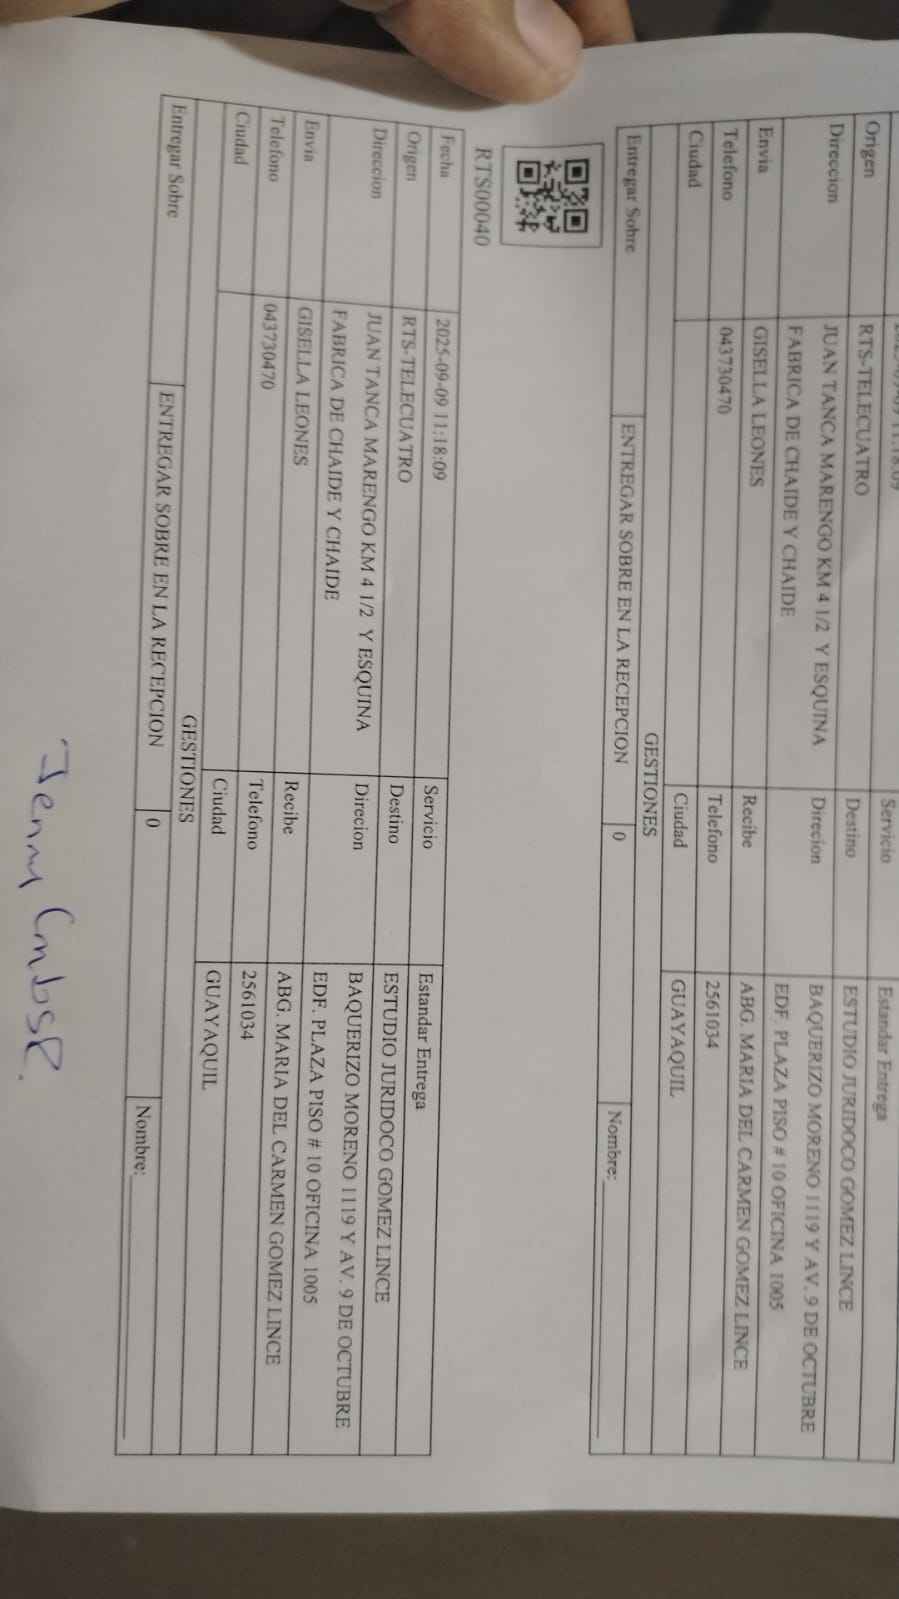 Servicio Estandar Entrega
Origen RTS-TELECUATRO Destino ESTUDIO JURIDOCO GOMEZ LINCE
Direccion JUAN TANCA MARENGO KM 4 1/2 Y ESQUINA Direcion BAQUERIZO MORENO 1119 Y AV. 9 DE OCTUBRE
FABRICA DE CHAIDE Y CHAIDE EDF. PLAZA PISO # 10 OFICINA 1005
Envia GISELLA LEONES Recibe ABG. MARIA DEL CARMEN GOMEZ LINCE
Telefono 043730470 Telefono 2561034
Ciudad Ciudad GUAYAQUIL
GESTIONES
Entregar Sobre ENTREGAR SOBRE EN LA RECEPCION 0 Nombre:
RTS00040
Fecha 2025-09-09 11:18:09 Servicio Estandar Entrega
Origen RTS-TELECUATRO Destino ESTUDIO JURIDOCO GOMEZ LINCE
Direccion JUAN TANCA MARENGO KM 4 1/2 Y ESQUINA Direcion BAQUERIZO MORENO 1119 Y AV. 9 DE OCTUBRE
FABRICA DE CHAIDE Y CHAIDE EDF. PLAZA PISO # 10 OFICINA 1005
Envia GISELLA LEONES Recibe ABG. MARIA DEL CARMEN GOMEZ LINCE
Telefono 043730470 Telefono 2561034
Ciudad Ciudad GUAYAQUIL
GESTIONES
Entregar Sobre ENTREGAR SOBRE EN LA RECEPCION 0 Nombre:
Jenny